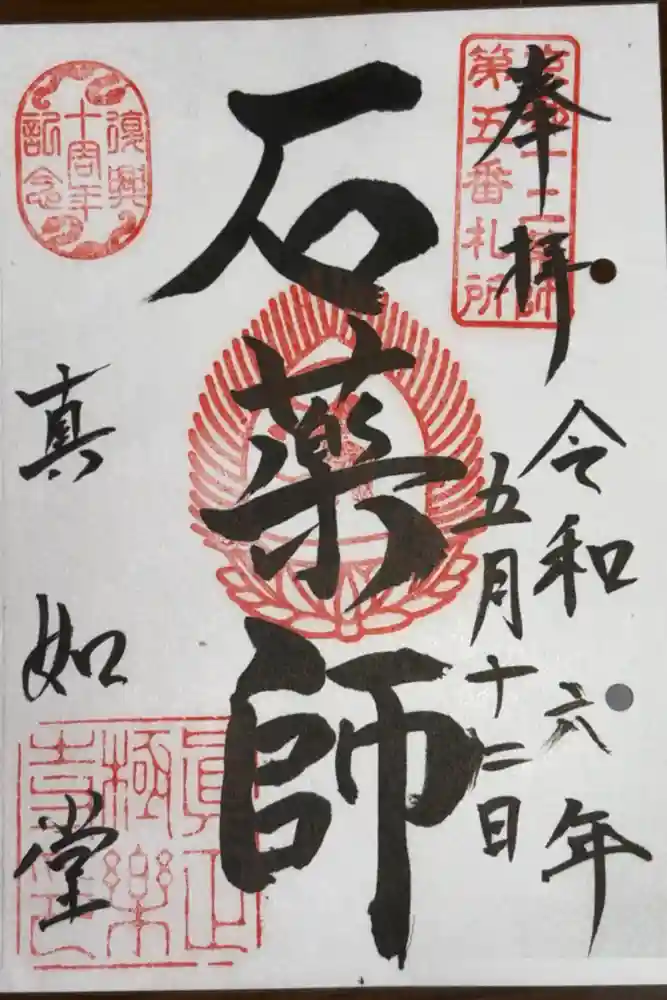 奉拝
京都十二薬師
第五番札所
令和六年
五月十二日
石薬師
復興
十周年
記念
真如堂
眞正
極樂
寺